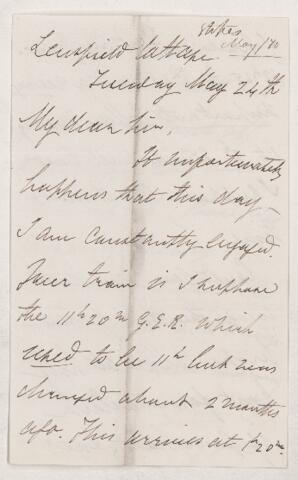 Stokes
May/70
Lensfield Cottage
Tuesday May 24th
My dear Sir,
It unfortunately
happens that this day
I am constantly engaged.
Your train is I suppose
the 11h 20m G.E.R. which
used to be 11h but was
changed about 2 months
ago. This arrives at 1h 20m.